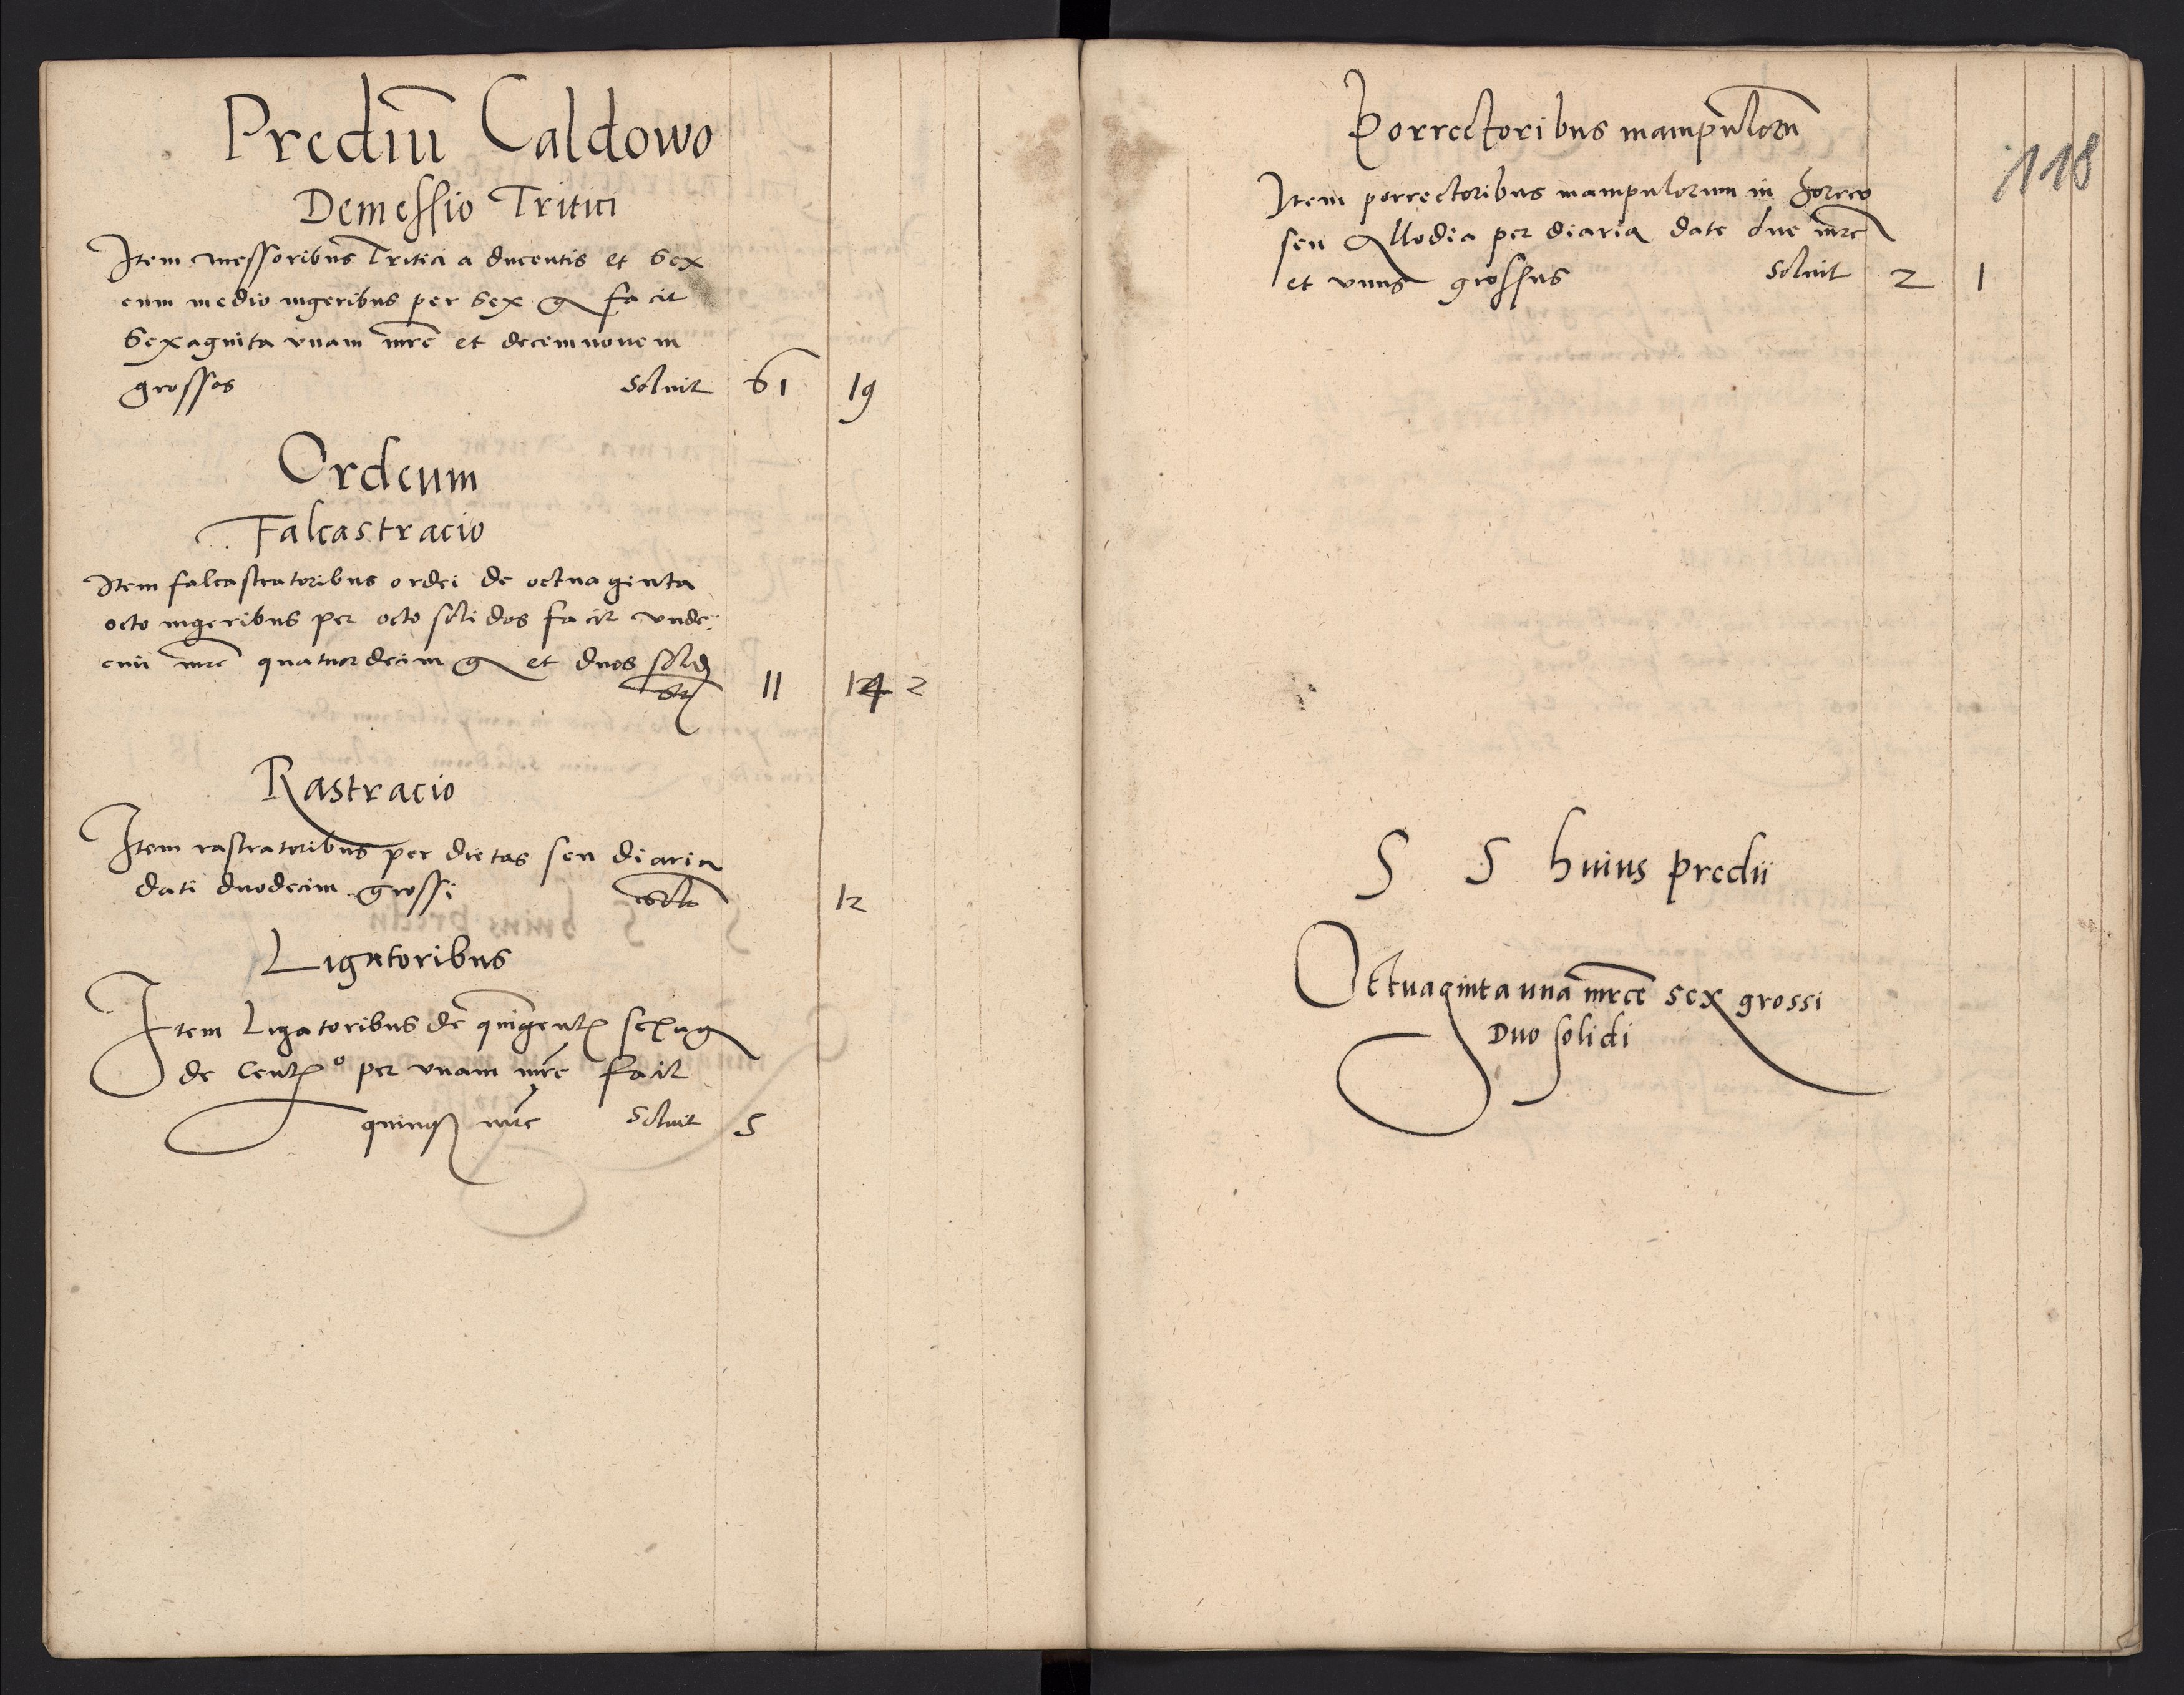 Prediū Caldowo
Demessio Tritici
Item messoribus Tritici a ducentis et sex
cum medio iugeribus per sex g facit
sexaginta unam mrc et decemnovem
grossos soluit 61 19
Ordeum
Falcastracio
Item falcastratoribus ordei de octuaginta
octo iugeribus per octo solidos facit unde
cim mrc quatuordecim g et duos solid
11 14 2
Rastracio
Item rastratoribus per dietas seu diaria
dati duodecim grossi solt 12
Ligatoribus
Item Ligatoribus de quingent sexag
de Cent° per unam mrc facit
quinq mrc soluit 5
Porrectoribus mampulorū
118
Item porrectoribus mampulorum in horreo
seu allodia per diaria date due mrc
et unus grossus soluit 2 1
S S huius predii
Octuaginta una mrce sex grossi
Duo solidi